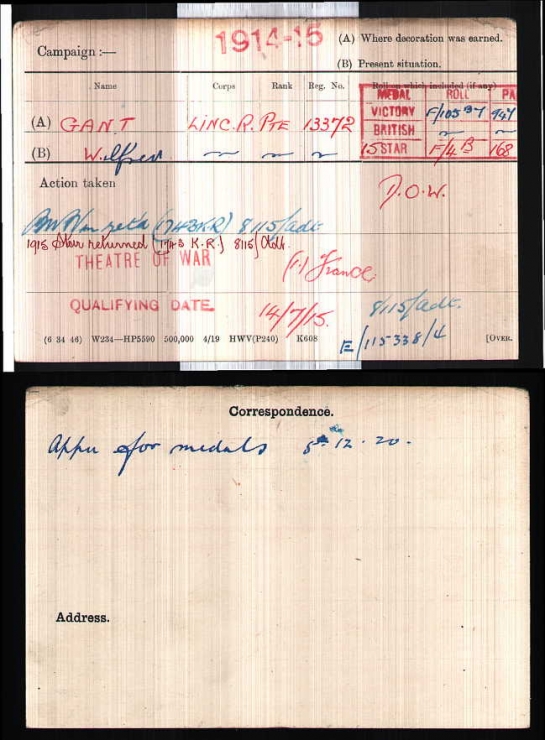 1914-15
Campaign :—
(A) Where decoration was earned.
(B) Present situation.
Name Corps Rank Reg. No. Roll on which included (if any)
MEDAL ROLL PA
(A) GANT LINC.R. PTE 13372
VICTORY F/105 B7 947
BRITISH ~ ~
(B) Wilfred ~ ~ ~
15 STAR F/4 B 168
Action taken
D.O.W.
(743KR) 8115/adt.
1915 Star returned (743 K.R.) 8115/Adt.
THEATRE OF WAR (1) France
QUALIFYING DATE 14/7/15.
8115/adt.
E/115338/4
(6 34 46) W234—HP5590 500,000 4/19 HWV(P240) K608 [OVER.
Correspondence.
for medals 12.20.
Address.